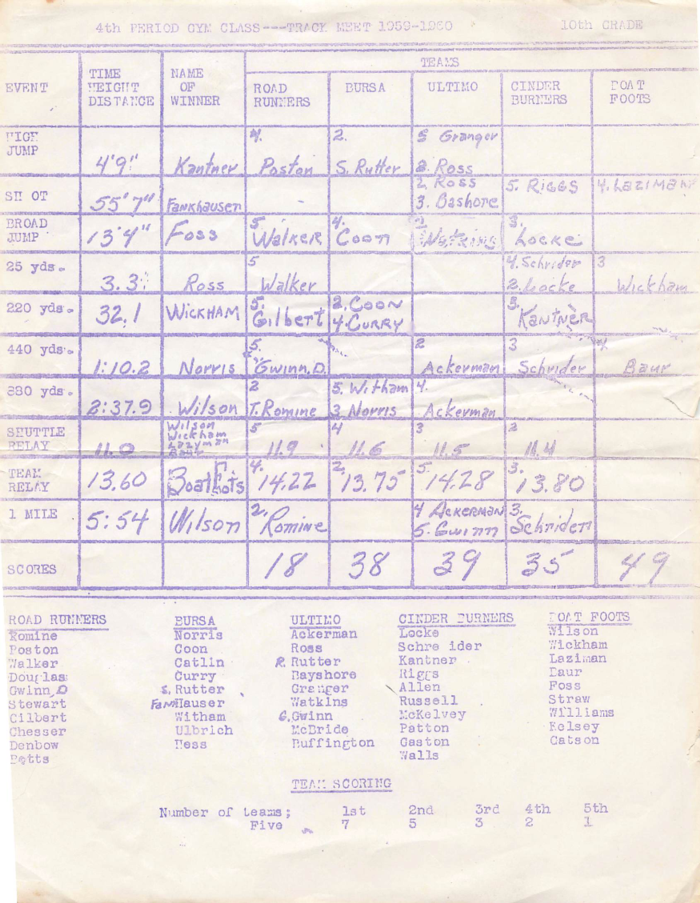 4th PERIOD GYM CLASS---TRACK MEET 1959-1960 10th GRADE
TEAMS
EVENT TIME HEIGHT DISTANCE NAME OF WINNER ROAD RUNNERS BURSA ULTIMO CINDER BURNERS BOAT FOOTS
HIGH JUMP 4'9" Kantner 4. Poston 2. S. Rutter 5 Granger 3. Ross
SHOT 55'7" Fankhauser 2. Ross 3. Bashore 5. Riggs 4. Laziman
BROAD JUMP 13'4" Foss 5. Walker 4. Coon 2. Watkins 3. Locke
25 yds. 3.3 Ross 5 Walker 4. Schrider 2. Locke 3 Wickham
220 yds. 32.1 Wickham 5. Gilbert 2. Coon 4. Curry 3. Kantner
440 yds. 1:10.2 Norris 5. Gwinn, D. 2 Ackerman 3 Schrider 4. Baur
880 yds. 2:37.9 Wilson 2 T. Romine 5. Witham 3. Norris 4. Ackerman
SHUTTLE RELAY 11.0 Wilson Wickham Lazyman 5 11.9 4 11.6 3 11.5 2 11.4
TEAM RELAY 13.60 Boatfoots 4. 14.22 2. 13.75 5. 14.28 3. 13.80
1 MILE 5:54 Wilson 2. Romine 4 Ackerman 5. Gwinn 3. Schrider
SCORES 18 38 39 35 49
ROAD RUNNERS BURSA ULTIMO CINDER BURNERS BOAT FOOTS
Romine Norris Ackerman Locke Wilson
Poston Coon Ross Schre ider Wickham
Walker Catlin R. Rutter Kantner Laziman
Douglas Curry Bayshore Riggs Baur
Gwinn, D S. Rutter Granger Allen Foss
Stewart Fankhauser Watkins Russell Straw
Gilbert Witham G. Gwinn McKelvey Williams
Chesser Ulbrich McBride Patton Kelsey
Denbow Hess Buffington Gaston Catson
Potts Walls
TEAM SCORING
Number of teams; 1st 2nd 3rd 4th 5th
Five 7 5 3 2 1